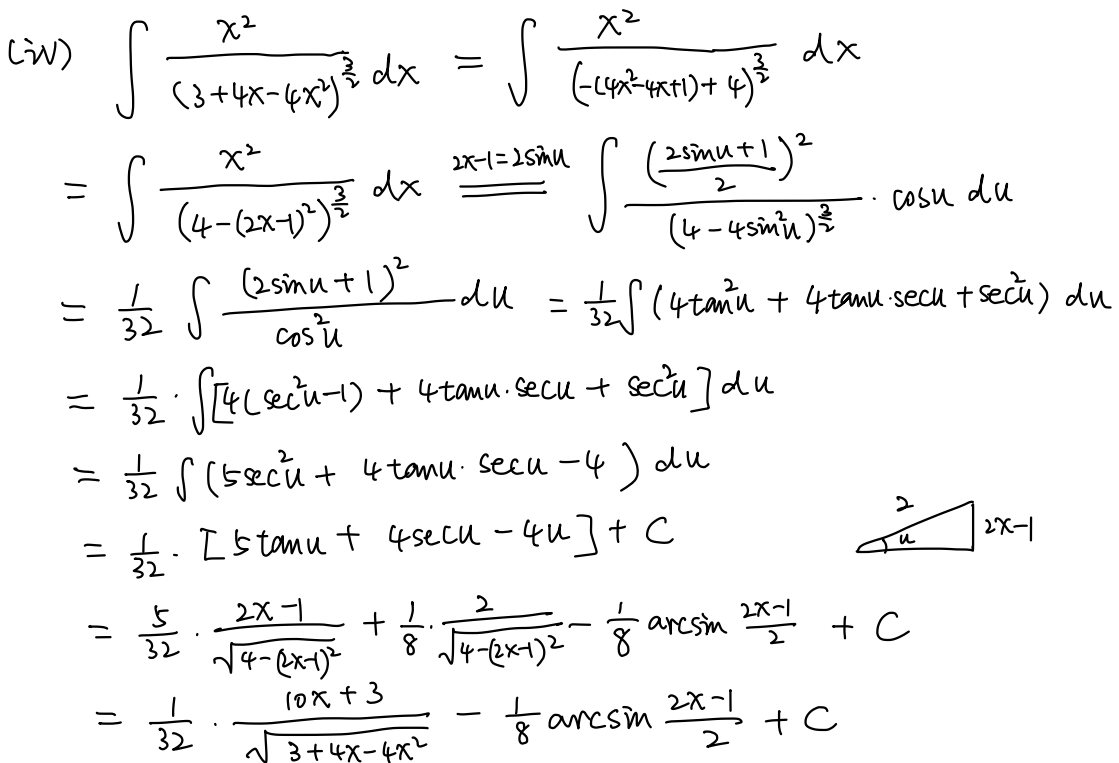 (iv) ∫ x²/(3+4x-4x²)^(3/2) dx = ∫ x²/(-(4x²-4x+1)+4)^(3/2) dx
= ∫ x²/(4-(2x-1)²)^(3/2) dx =(2x-1=2sinu)= ∫ ((2sinu+1)/2)²/(4-4sin²u)^(3/2) · cosu du
= 1/32 ∫ (2sinu+1)²/cos²u du = 1/32 ∫ (4tan²u + 4tanu·secu + sec²u) du
= 1/32 · ∫[4(sec²u-1) + 4tanu·secu + sec²u] du
= 1/32 ∫ (5sec²u + 4tanu·secu - 4) du
= 1/32 · [5tanu + 4secu - 4u] + C
2 u 2x-1
= 5/32 · (2x-1)/√(4-(2x-1)²) + 1/8 · 2/√(4-(2x-1)²) - 1/8 arcsin (2x-1)/2 + C
= 1/32 · (10x+3)/√(3+4x-4x²) - 1/8 arcsin (2x-1)/2 + C